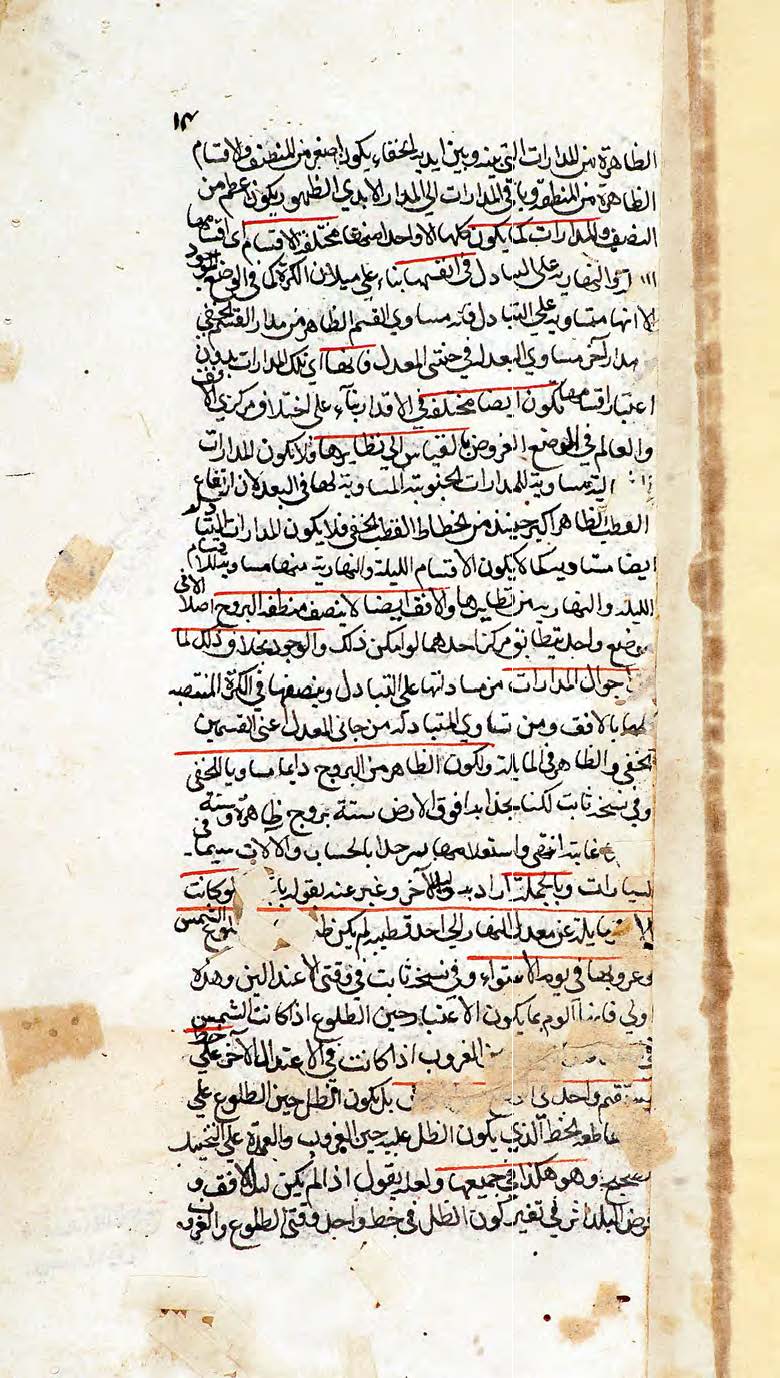 ١٣
الظاهرة من المدارات التي بينه وبين ابدي الخفاء يكون اصغر من النصف والاقسام
الظاهرة من المنطقة وباقي المدارات الى المدار الابدي الظهور يكون اعظم من
النصف والمدارات كما يكون كلها الا واحدا منها مختلفة الاقسام اي اقسامها
والنهارية على التبادل في القسمها بناء على ميلان الكرة كما في الوضع الموجود
الا انها متساوية على التبادل فانه مساوي القسم الظاهر من مدار القسم الخفي
مدار آخر مساوي البعد له في جنبتي المعدل فانها اي تلك المدارات بدون
اعتبار اقسامها تكون ايضا مختلفة في الاقدار بناء على اختلاف مركزي الافق
والعالم في الوضع المفروض بالقياس الى نظايرها فلا يكون المدارات
مساوية للمدارات الجنوبية المساوية لها في البعد لان ارتفاع
القطب الظاهر اكبر حينئذ من انحطاط القطب الخفي فلا يكون المدارات
ايضا متساويين كما لا يكون الاقسام الليلية والنهارية منها مساوية للاقسام
الليلية والنهارية من نظايرها والافق ايضا لا ينصف منطقة البروج اصلا الا في
موضع واحد يطابق مركز احدهما لو امكن ذلك والوجود بخلاف ذلك لما
احوال المدارات من مساواتها على التبادل وينصفها في الكرة المنتصبة
بالافق ومن تساوي المتبادلة من جانبي المعدل اعني القسمين
الخفي والظاهر في المايلة ولكون الظاهر من البروج دايما مساويا للخفي
وفي نسخة ثابت لكنا نجد ابدا فوق الارض ستة بروج ظاهرة وستة
غايبة اختفى واستعلامها سرجدا بالحساب والالات سيما في
السيارات وبالجملة اراد به وليل آخر وغير عنه بقوله لو كانت
مايلة عن معدل النهار الى احد قطبيه لم يكن طلوع الشمس
وغروبها في يوم الاستواء وفي نسخة ثابت في وقتي الاعتدالين وهذه
ولي فانها الوم عما يكون الاعتبار حين الطلوع اذا كانت الشمس
الغروب اذا كانت في الاعتدال الآخر على خط
مستقيم واحد بل يكون الظل حين الطلوع على
الخط الذي يكون الظل عليه حين الغروب والعمدة على
صحيح وهو هكذا في جميعها ولعله يقول اذا لم يكن لميل الافق و
عرض البلد اثر في تغير كون الظل في خط واحد وقتي الطلوع والغروب